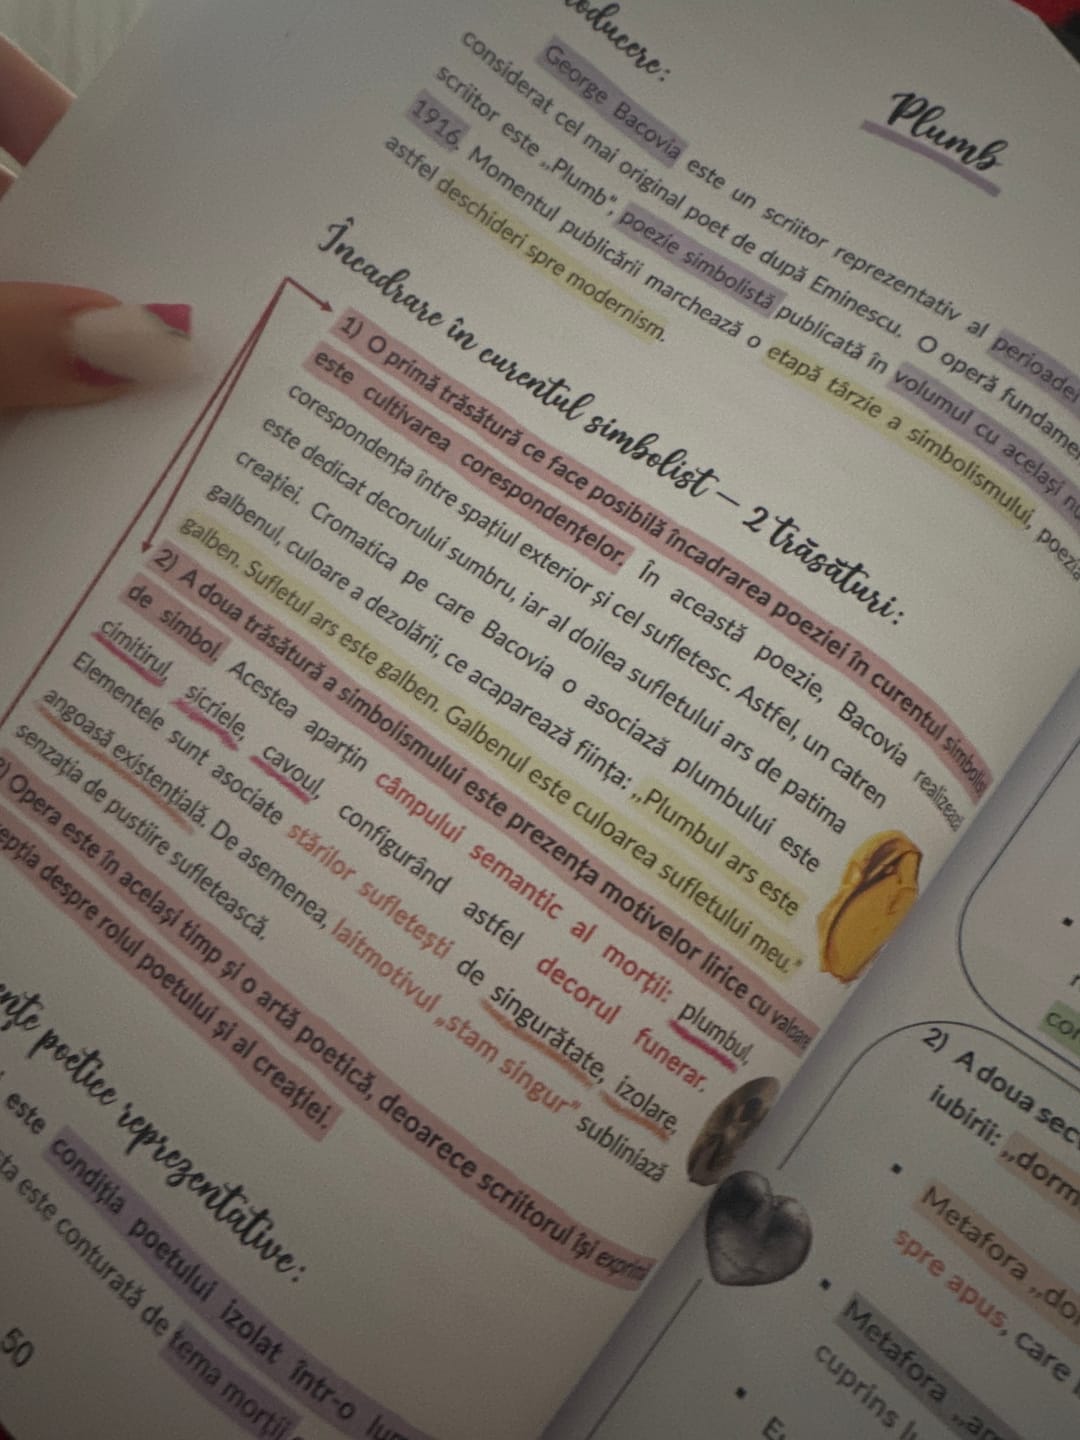 Plumb
George Bacovia este un scriitor reprezentativ al perioadei
considerat cel mai original poet de după Eminescu. O operă
scriitor este „Plumb", poezie simbolistă publicată în volumul cu același
1916. Momentul publicării marchează o etapă târzie a simbolismului, poezia
astfel deschideri spre modernism.
Încadrare în curentul simbolist – 2 trăsături:
1) O primă trăsătură ce face posibilă încadrarea poeziei în curentul
este cultivarea corespondențelor. În această poezie, Bacovia realizează
corespondența între spațiul exterior și cel sufletesc. Astfel, un catren
este dedicat decorului sumbru, iar al doilea sufletului ars de patima
creației. Cromatica pe care Bacovia o asociază plumbului este
galbenul, culoare a dezolării, ce acaparează ființa: „Plumbul ars este
galben. Sufletul ars este galben. Galbenul este culoarea sufletului meu."
2) A doua trăsătură a simbolismului este prezența motivelor lirice cu valoare
de simbol. Acestea aparțin câmpului semantic al morții: plumbul,
cimitirul, sicriele, cavoul, configurând astfel decorul funerar.
Elementele sunt asociate stărilor sufletești de singurătate, izolare,
angoasă existențială. De asemenea, laitmotivul „stam singur" subliniază
senzația de pustiire sufletească.
Opera este în același timp și o artă poetică, deoarece scriitorul își exprimă
despre rolul poetului și al creației.
poetice reprezentative:
este condiția poetului izolat într-o
este conturată de tema morții
50
2) A doua
iubirii:
Metafora
spre apus, care
Metafora
cuprins